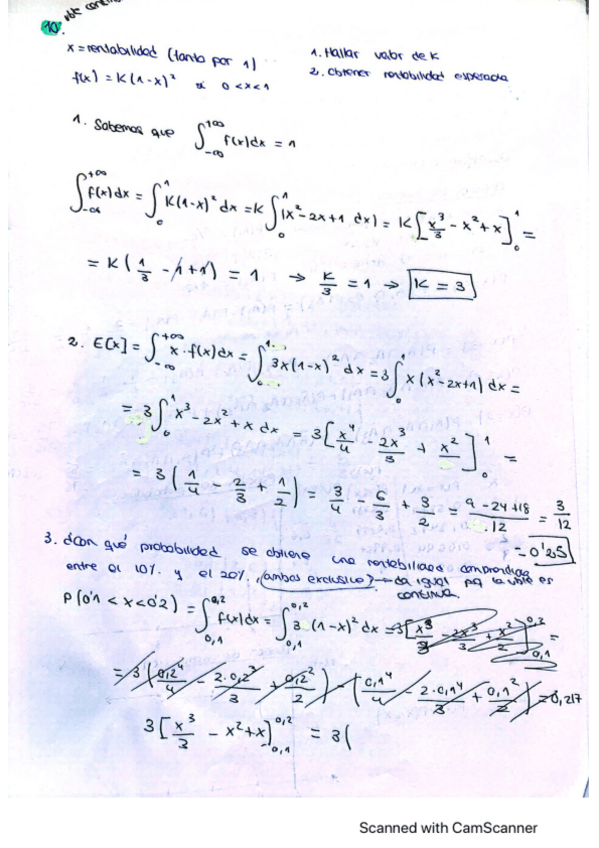 10.
x = rentabilidad (tanto por 1)
f(x) = K(1-x)² si 0<x<1
1. Hallar valor de K
2. Obtener rentabilidad esperada
1. Sabemos que ∫_{-∞}^{+∞} f(x)dx = 1
∫_{-∞}^{+∞} f(x)dx = ∫_0^1 K(1-x)² dx = K ∫_0^1 (x²-2x+1 dx) = K [x³/3 - x² + x]_0^1 =
= K (1/3 - 1 + 1) = 1 → K/3 = 1 → K = 3
2. E[x] = ∫_{-∞}^{+∞} x·f(x)dx = ∫_0^1 3x(1-x)² dx = 3 ∫_0^1 x(x²-2x+1) dx =
= 3 ∫_0^1 x³ - 2x² + x dx = 3 [x⁴/4 - 2x³/3 + x²/2]_0^1 =
= 3 (1/4 - 2/3 + 1/2) = 3/4 - 6/3 + 3/2 = 9-24+18/12 = 3/12
= 0'25
3. ¿Con qué probabilidad se obtiene una rentabilidad comprendida
entre el 10% y el 20%. (ambos exclusive) → da igual pq la vble es
continua.
P(0'1 < x < 0'2) = ∫_{0,1}^{0,2} f(x)dx = ∫_{0,1}^{0,2} 3 (1-x)² dx = 3 [x³/3 - 2x³/3 + x²/2]_{0,1}^{0,2} =
= 3 (0,2⁴/4 - 2·0,2³/3 + 0,2²/2) - (0,1⁴/4 - 2·0,1⁴/3 + 0,1²/2) = 0,217
3 [x³/3 - x² + x]_{0,1}^{0,2} = 3(
Scanned with CamScanner